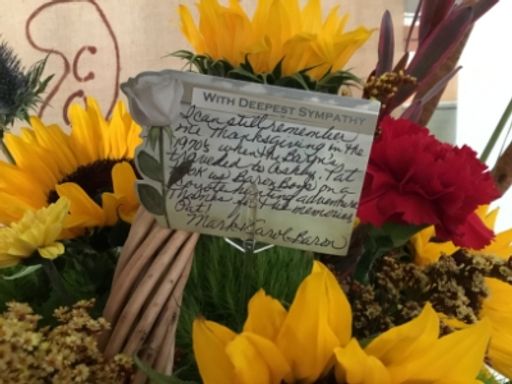 WITH DEEPEST SYMPATHY
I can still remember
one Thanksgiving in the
1970s when the Baron's
traveled to Ashby. Pat
took us Baron Boys on a
coyote hunting adventure
Thanks for the memories
Pat!
Mark & Carol Baron